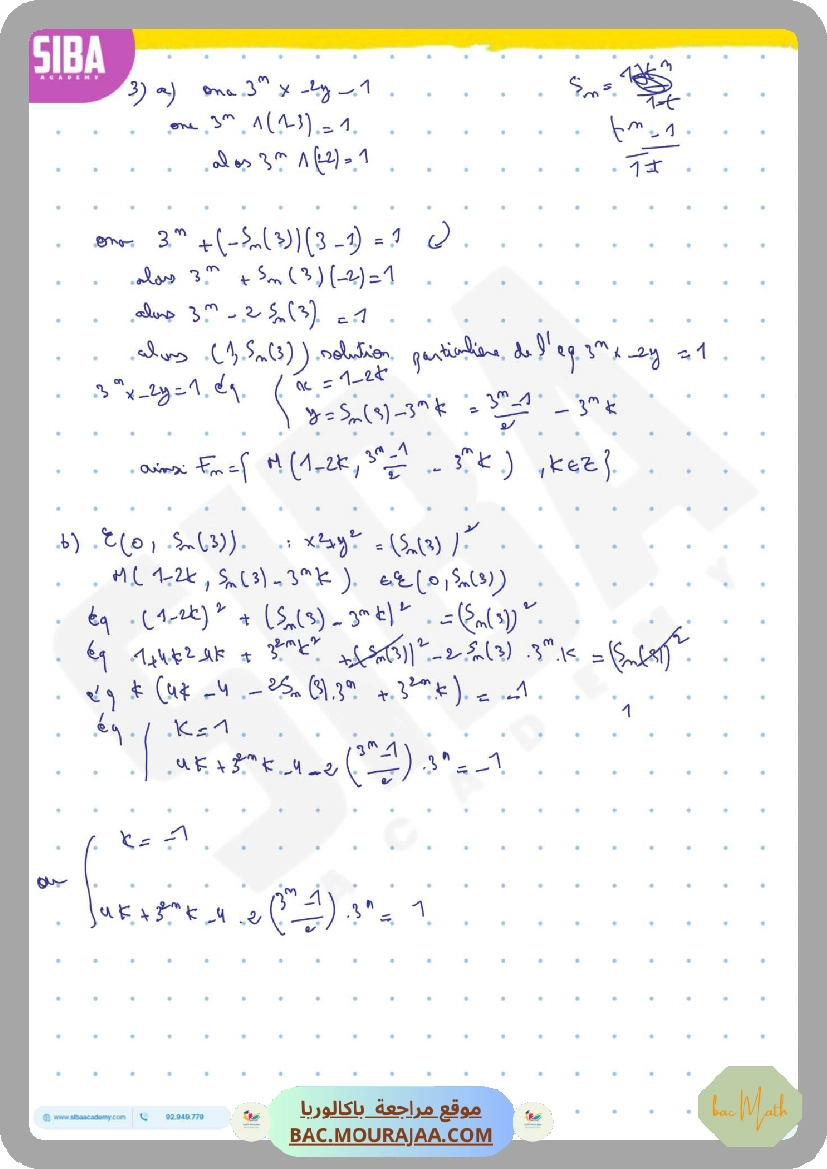 SIBA
ACADEMY
3) a) ona 3ⁿ x - 2y - 1
ona 3ⁿ ∧ (1-3) = 1
alors 3ⁿ ∧ (-2) = 1
Sₙ =
1-t
tⁿ - 1
1-t
ona 3ⁿ + (-Sₙ(3))(3-1) = 1
alors 3ⁿ + Sₙ(3)(-2) = 1
alors 3ⁿ - 2Sₙ(3) = 1
alors (1, Sₙ(3)) solution particulière de l'eq 3ⁿx - 2y = 1
3ⁿx - 2y = 1 éq { x = 1-2k
y = Sₙ(3) - 3ⁿk = (3ⁿ-1)/2 - 3ⁿk
ainsi Fₙ = { M(1-2k, (3ⁿ-1)/2 - 3ⁿk), k∈Z }
b) ℰ(0, Sₙ(3)) : x²+y² = (Sₙ(3))²
M(1-2k, Sₙ(3) - 3ⁿk) ∈ ℰ(0, Sₙ(3))
éq (1-2k)² + (Sₙ(3) - 3ⁿk)² = (Sₙ(3))²
éq 1+4k²-4k + 3²ⁿk² + (Sₙ(3))² - 2Sₙ(3).3ⁿ.k = (Sₙ(3))²
éq k(4k - 4 - 2Sₙ(3).3ⁿ + 3²ⁿ.k) = -1
1
éq { k = 1
4k + 3²ⁿk - 4 - 2((3ⁿ-1)/2).3ⁿ = -1
ou { k = -1
4k + 3²ⁿk - 4 - 2((3ⁿ-1)/2).3ⁿ = 1
www.sibaacademy.com 92.949.779
موقع مراجعة باكالوريا
BAC.MOURAJAA.COM
bac Math